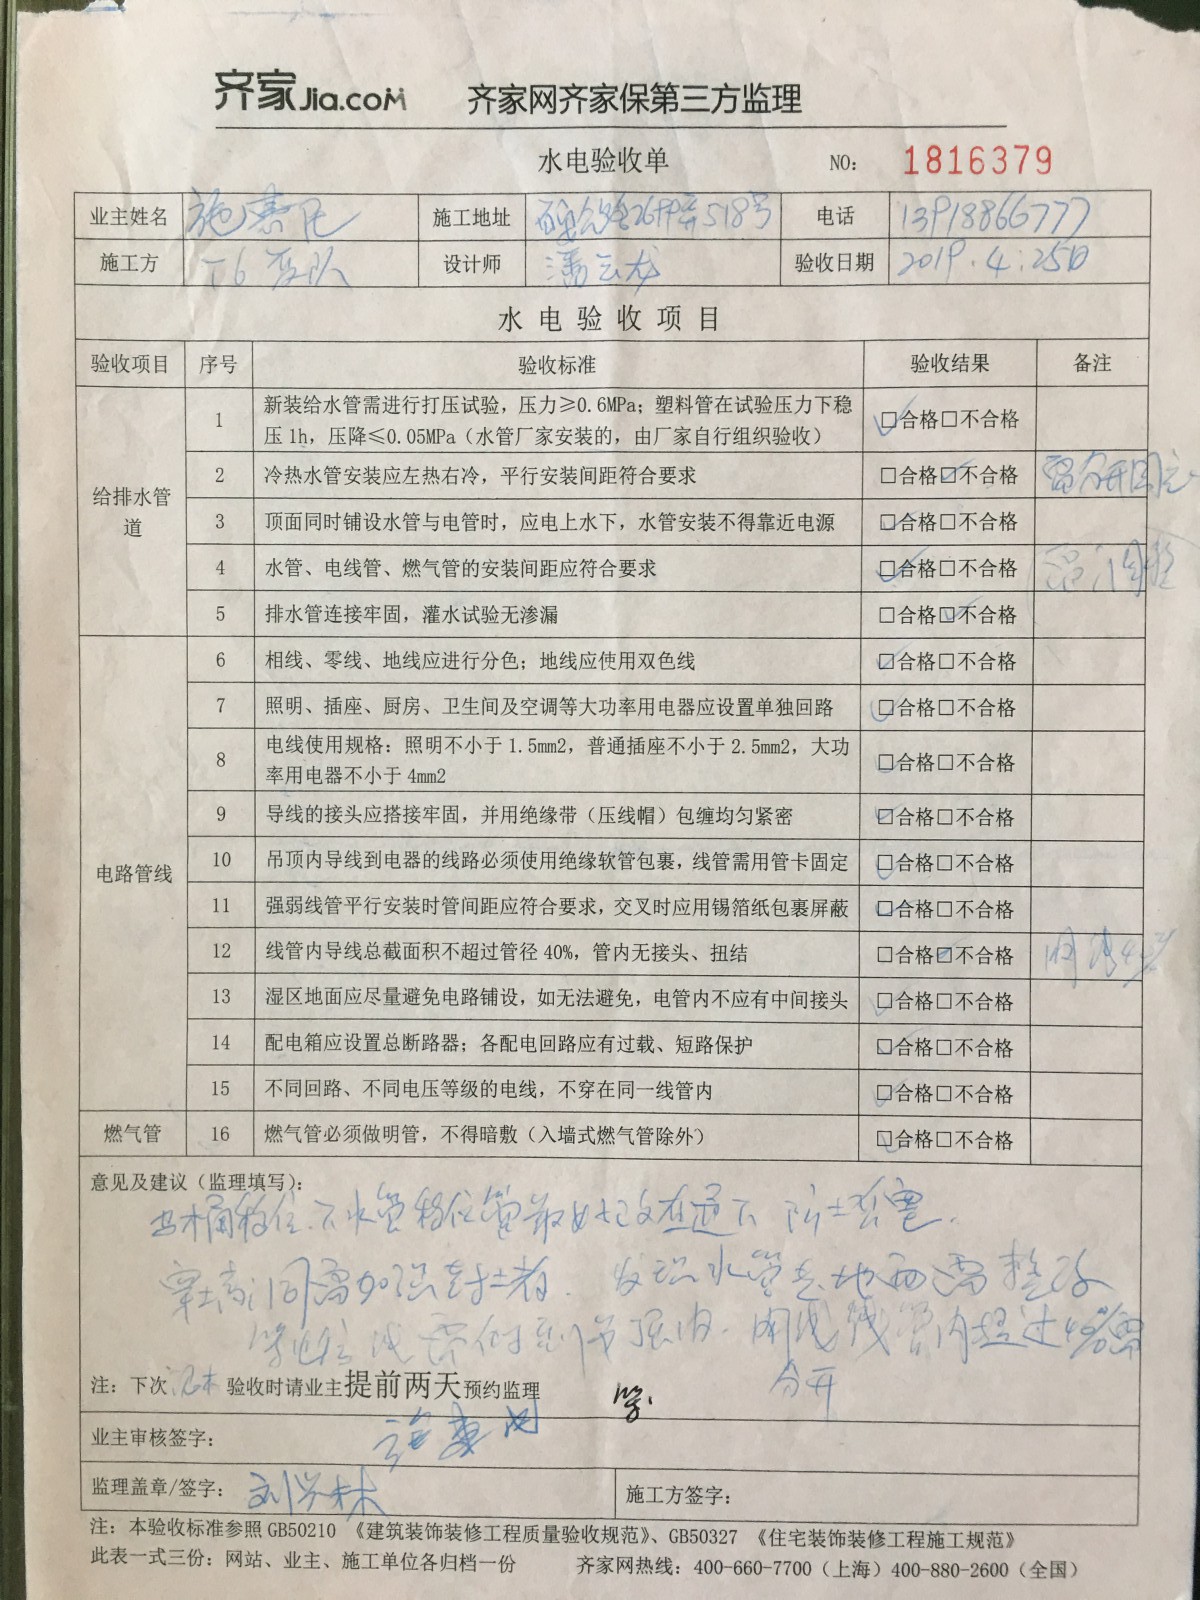 齐家Jia.com 齐家网齐家保第三方监理
水电验收单 NO: 1816379
业主姓名 施工地址 518号 电话 13918866777
施工方 设计师 潘云龙 验收日期 2019.4.25日
水电验收项目
验收项目 序号 验收标准 验收结果 备注
给排水管道
1 新装给水管需进行打压试验，压力≥0.6MPa；塑料管在试验压力下稳
压1h，压降≤0.05MPa（水管厂家安装的，由厂家自行组织验收） □合格□不合格
2 冷热水管安装应左热右冷，平行安装间距符合要求 □合格□不合格 需分开固定
3 顶面同时铺设水管与电管时，应电上水下，水管安装不得靠近电源 □合格□不合格
4 水管、电线管、燃气管的安装间距应符合要求 □合格□不合格
5 排水管连接牢固，灌水试验无渗漏 □合格□不合格
电路管线
6 相线、零线、地线应进行分色；地线应使用双色线 □合格□不合格
7 照明、插座、厨房、卫生间及空调等大功率用电器应设置单独回路 □合格□不合格
8 电线使用规格：照明不小于1.5mm2，普通插座不小于2.5mm2，大功
率用电器不小于4mm2 □合格□不合格
9 导线的接头应搭接牢固，并用绝缘带（压线帽）包缠均匀紧密 □合格□不合格
10 吊顶内导线到电器的线路必须使用绝缘软管包裹，线管需用管卡固定 □合格□不合格
11 强弱线管平行安装时管间距应符合要求，交叉时应用锡箔纸包裹屏蔽 □合格□不合格
12 线管内导线总截面积不超过管径40%，管内无接头、扭结 □合格□不合格
13 湿区地面应尽量避免电路铺设，如无法避免，电管内不应有中间接头 □合格□不合格
14 配电箱应设置总断路器；各配电回路应有过载、短路保护 □合格□不合格
15 不同回路、不同电压等级的电线，不穿在同一线管内 □合格□不合格
燃气管 16 燃气管必须做明管，不得暗敷（入墙式燃气管除外） □合格□不合格
意见及建议（监理填写）：
马桶移位、下水管移位
发现水管走地面需整改
分开
注：下次 泥木 验收时请业主提前两天预约监理
业主审核签字：
监理盖章/签字： 施工方签字：
注：本验收标准参照GB50210《建筑装饰装修工程质量验收规范》、GB50327《住宅装饰装修工程施工规范》
此表一式三份：网站、业主、施工单位各归档一份 齐家网热线：400-660-7700（上海）400-880-2600（全国）